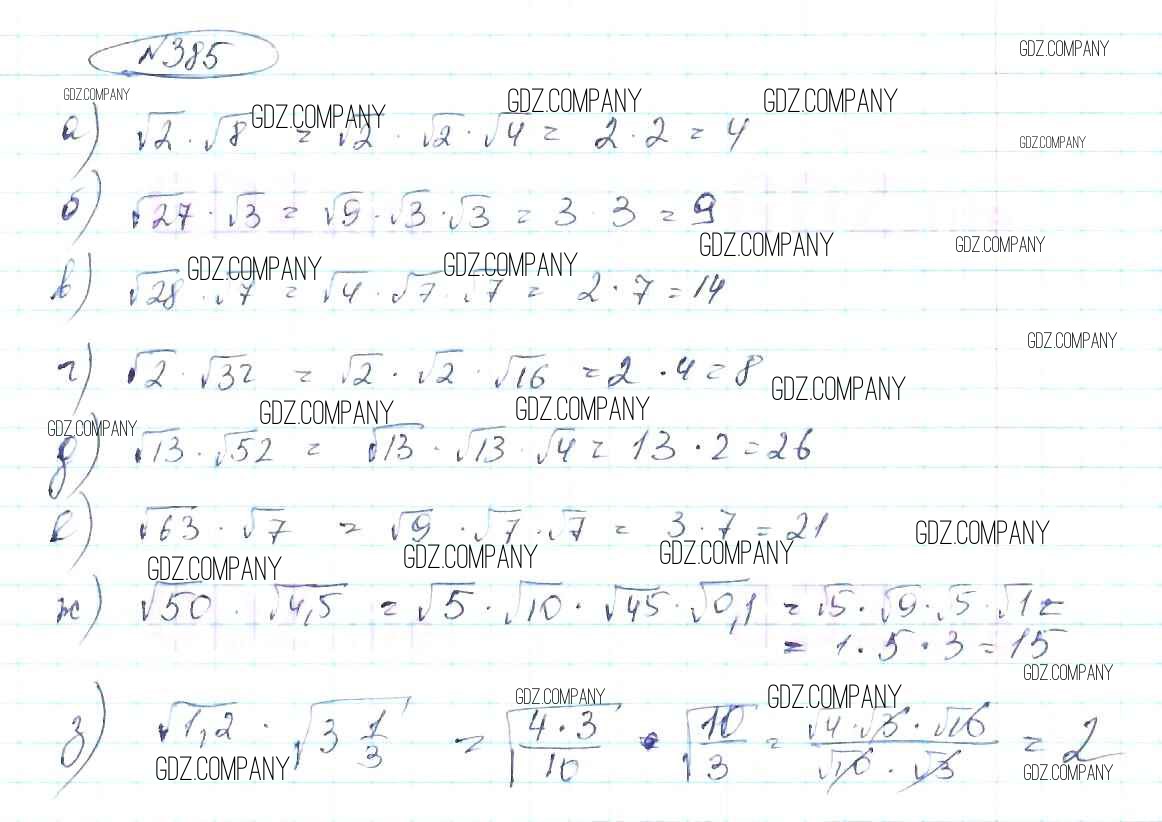 №385
GDZ.COMPANY
GDZ.COMPANY GDZ.COMPANY GDZ.COMPANY GDZ.COMPANY
а) √2 · √8 = √2 · √2 · √4 = 2 · 2 = 4
GDZ.COMPANY
б) √27 · √3 = √9 · √3 · √3 = 3 · 3 = 9
GDZ.COMPANY GDZ.COMPANY
GDZ.COMPANY GDZ.COMPANY
в) √28 · √7 = √4 · √7 · √7 = 2 · 7 = 14
GDZ.COMPANY
г) √2 · √32 = √2 · √2 · √16 = 2 · 4 = 8
GDZ.COMPANY
GDZ.COMPANY GDZ.COMPANY GDZ.COMPANY
д) √13 · √52 = √13 · √13 · √4 = 13 · 2 = 26
е) √63 · √7 = √9 · √7 · √7 = 3 · 7 = 21
GDZ.COMPANY
GDZ.COMPANY GDZ.COMPANY GDZ.COMPANY
ж) √50 · √4,5 = √5 · √10 · √45 · √0,1 = √5 · √9 · √5 · √1 =
= 1 · 5 · 3 = 15
GDZ.COMPANY
GDZ.COMPANY GDZ.COMPANY
з) √1,2 · √3 1/3 = √4·3/10 · √10/3 = √4 · √3 · √10 / √10 · √3 = 2
GDZ.COMPANY GDZ.COMPANY